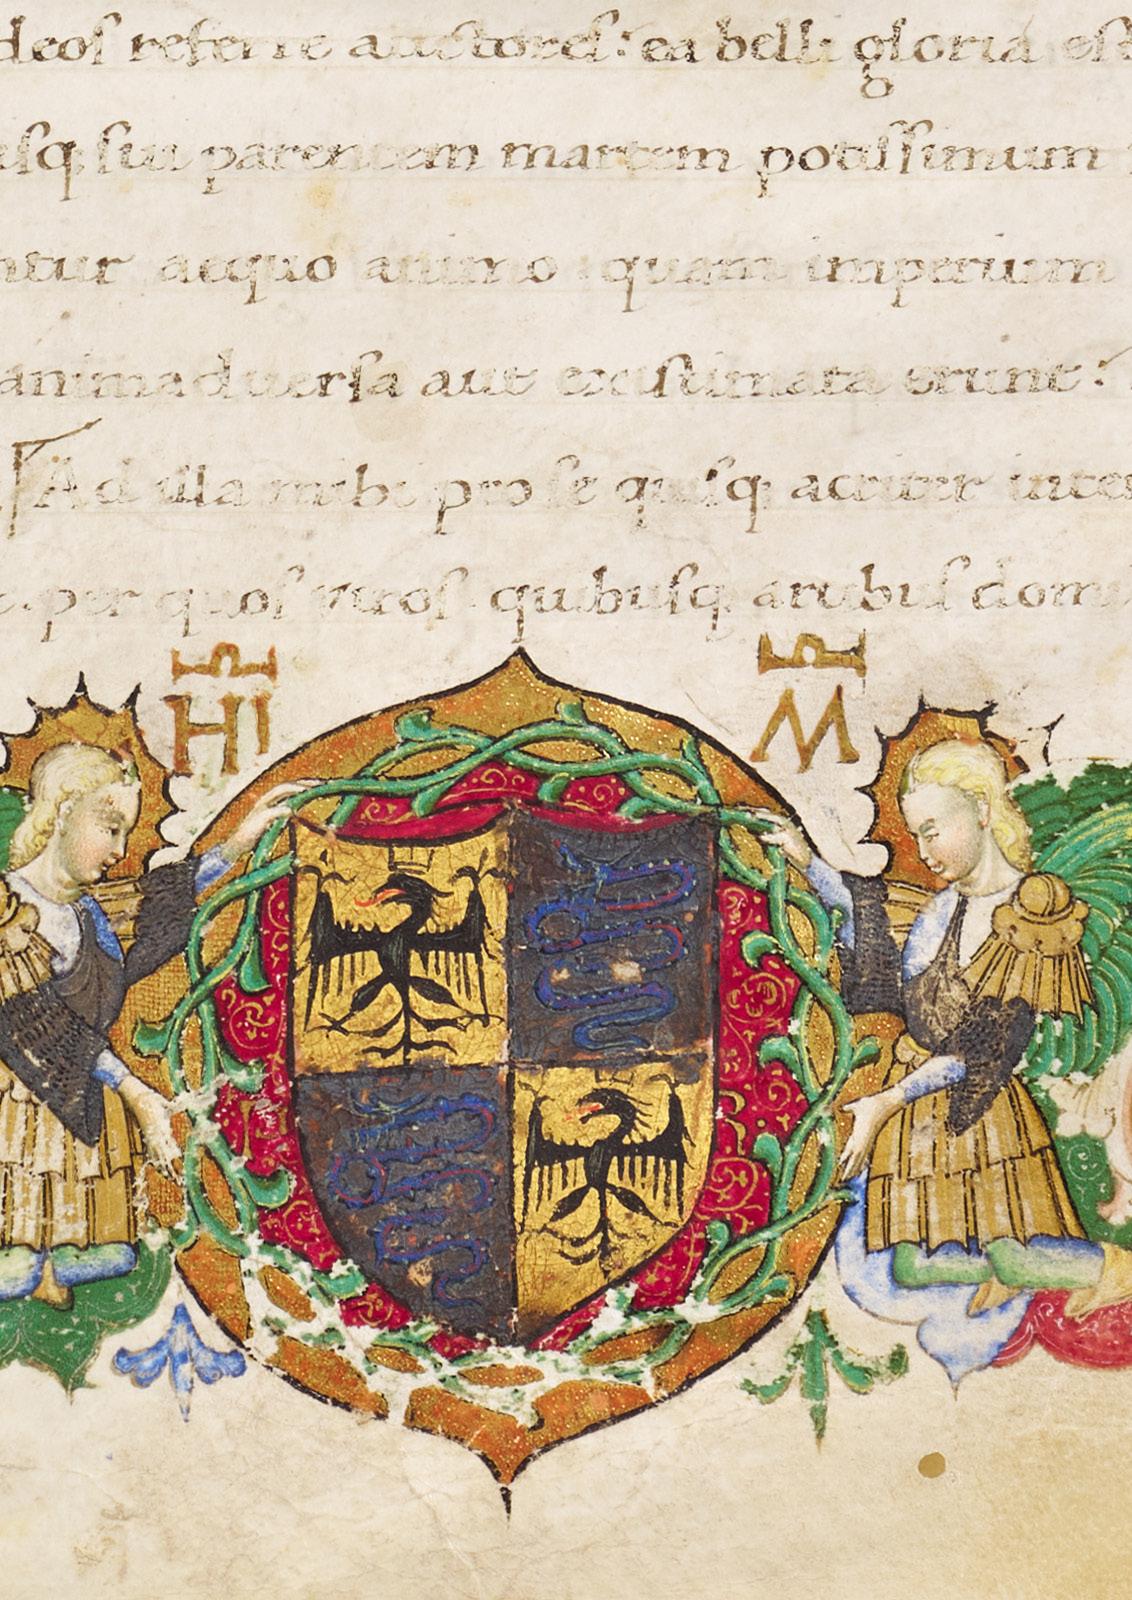 deos referre auctores: ea belli gloria est
usq sui parentem martem potissimum
ntur aequo animo quam imperium
animaduersa aut existimata erunt:
Ad illa mihi pro se quisq acriter inten
per quos uiros quibusq artibus domi
HI M